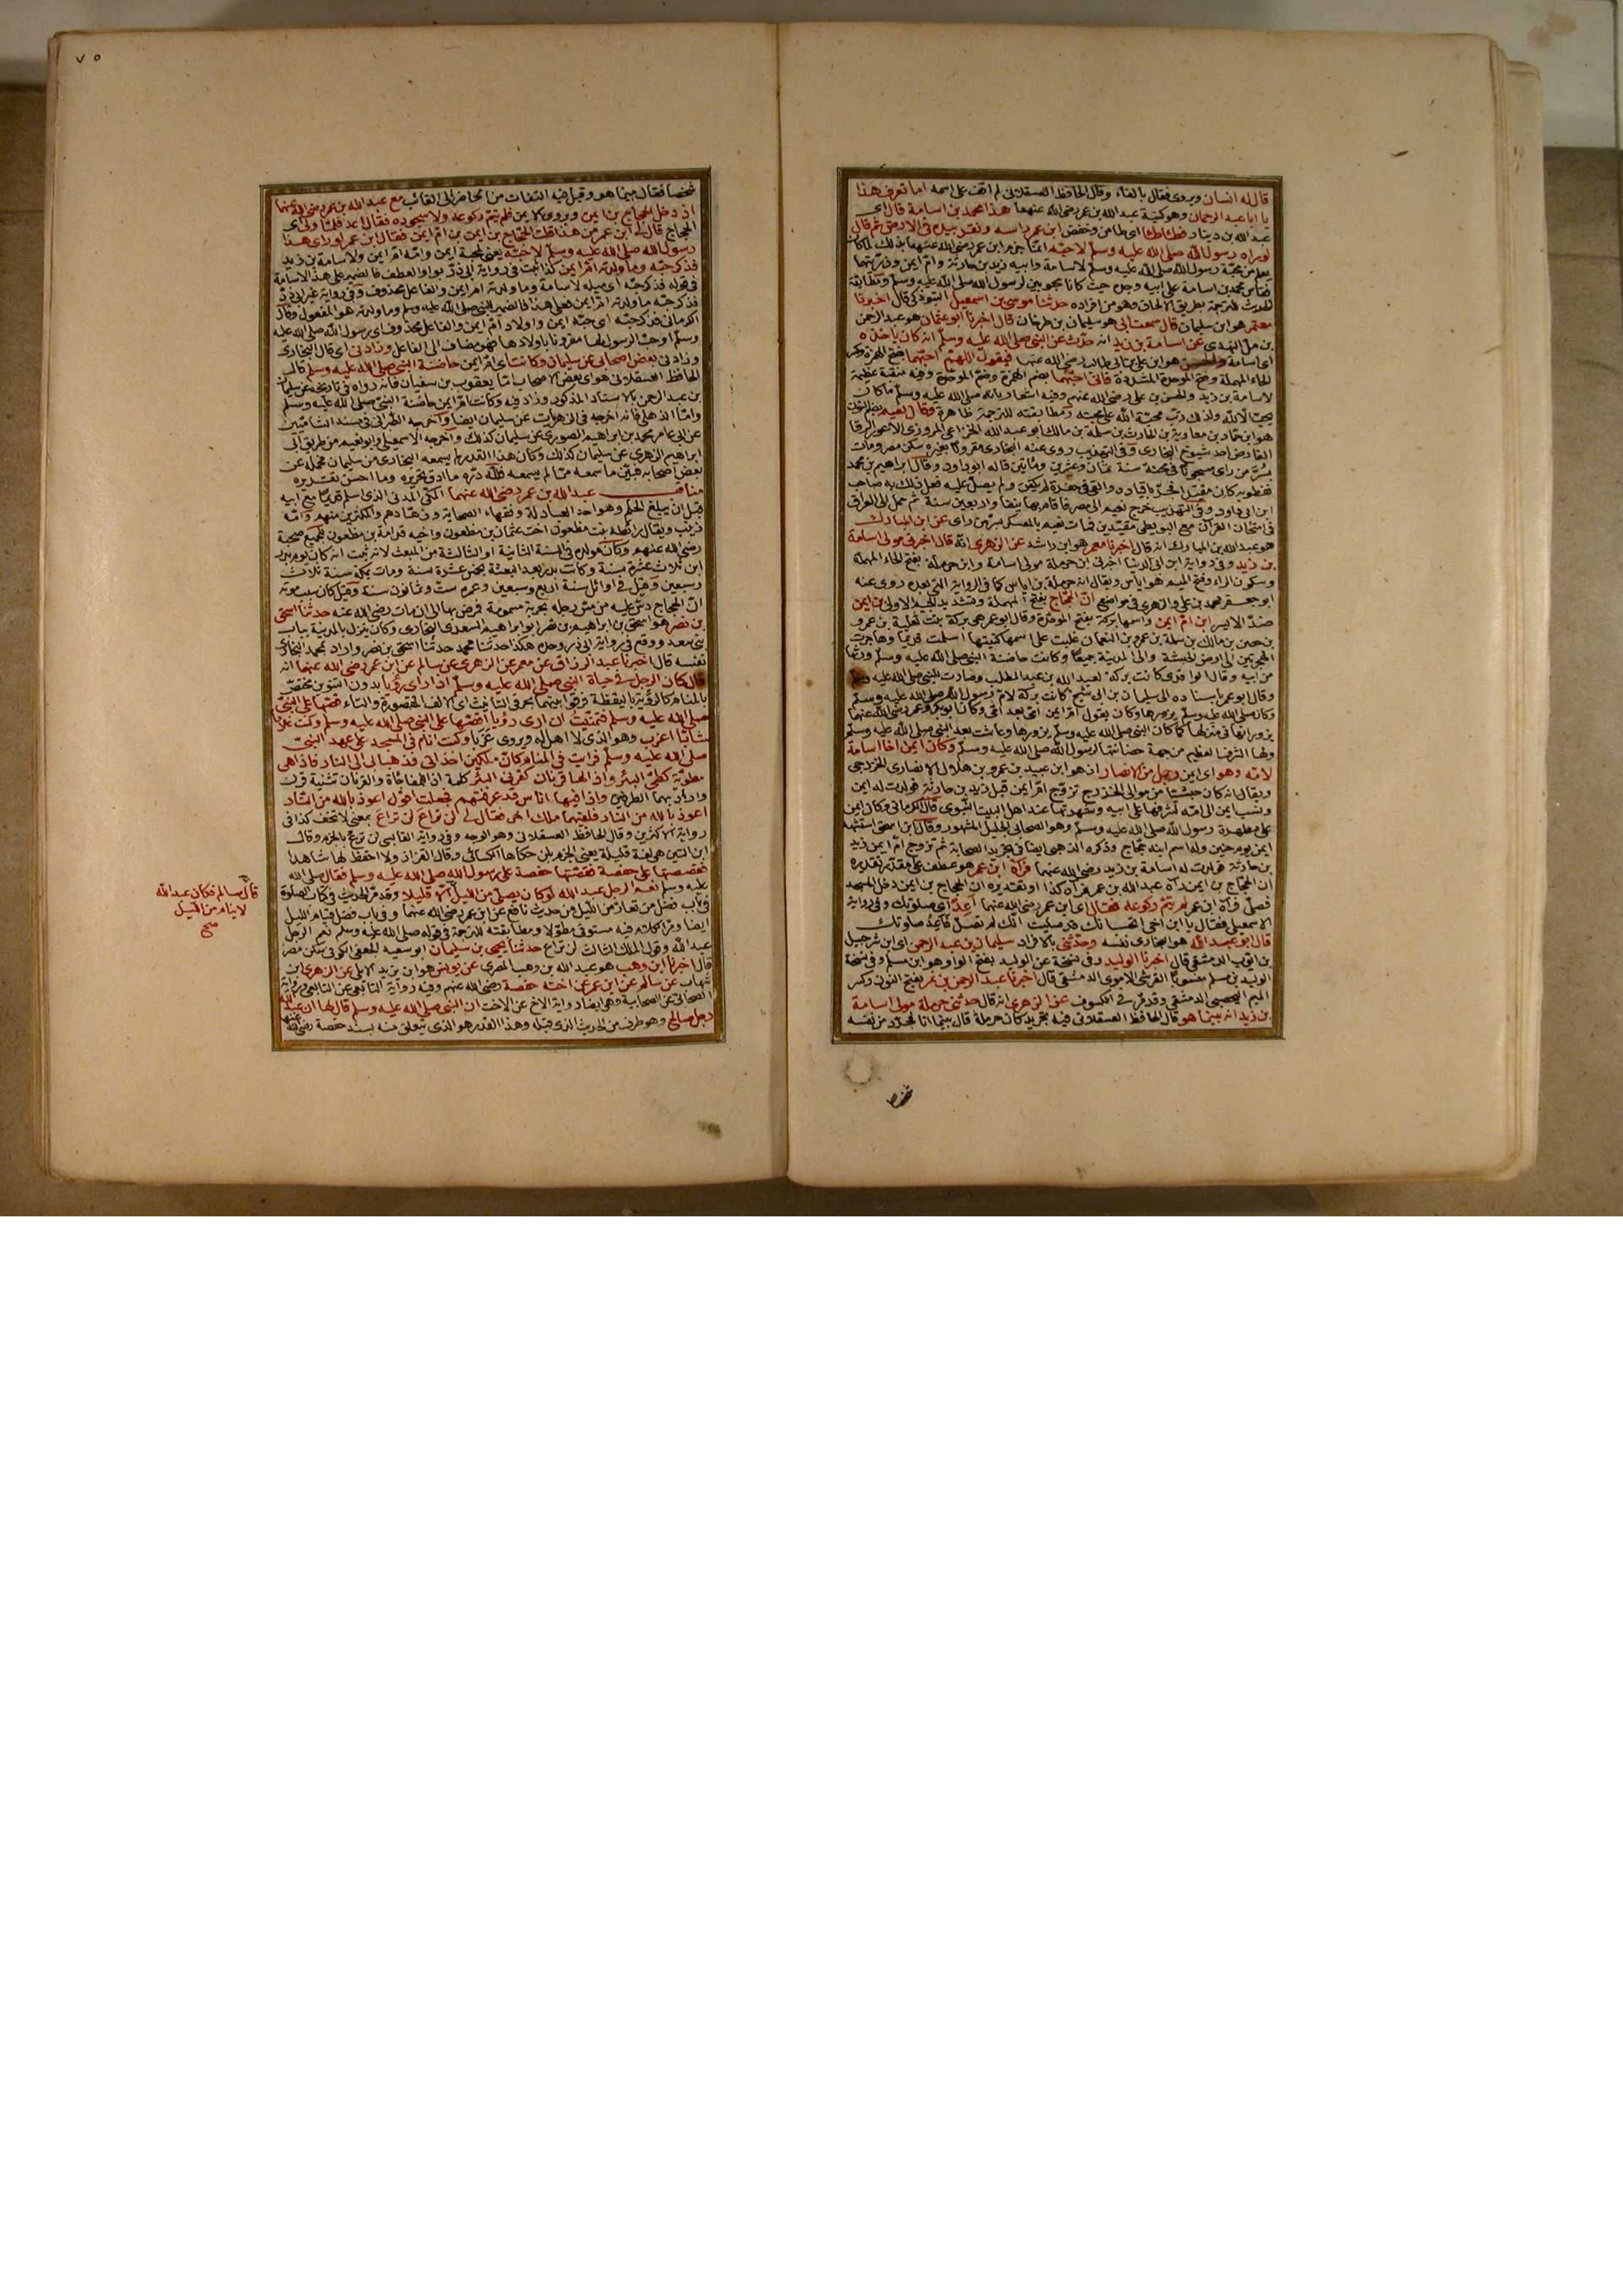 قال له انسان ويروى فقال بالفاء وقال الحافظ العسقلاني لم اقف على اسمه اما تعرف هذا
يا ابا عبد الرحمان وهو كنية عبد الله بن عمر رضي الله عنهما هذا محمد بن اسامة قال اي
عبد الله بن دينار فطأطأ اي طامن وخفض ابن عمر راسه ونقر بيده في الارض ثم قال
لو رآه رسول الله صلى الله عليه وسلم لاحبه انما جزم ابن عمر رضي الله عنهما بذلك لما كان
يعلم من محبة رسول الله صلى الله عليه وسلم لاسامة وابيه زيد بن حارثة وام ايمن وذريتهما
فقاس محمد بن اسامة على ابيه وجده حيث كانا محبوبين لرسول الله صلى الله عليه وسلم ومطابقة
الحديث للترجمة بطريق الالحاق وهو من افراده حدثنا موسى بن اسمعيل التبوذكي قال اخبرنا
معتمر هو ابن سليمان قال سمعت ابي هو سليمان بن طرخان قال اخبرنا ابو عثمان هو عبد الرحمن
بن مل النهدي عن اسامة بن زيد انه حدث عن النبي صلى الله عليه وسلم انه كان ياخذه
اي اسامة والحسن هو ابن علي بن ابي طالب رضي الله عنهما فيقول اللهم احبهما بفتح الهمزة وكسر
الحاء المهملة وفتح الموحدة المشددة فاني احبهما بضم الهمزة وضم الموحدة وفيه منقبة عظيمة
لاسامة بن زيد والحسن بن علي رضي الله عنهم وفيه اشعار بانه صلى الله عليه وسلم ما كان
يحب الا لله ولذلك رتب محبة الله على محبته ومطابقته للترجمة ظاهرة وقال نعيم بضم النون
هو ابن حماد بن معاوية بن الحارث بن سلمة بن مالك ابو عبد الله الخزاعي المروزي الاعور الرفا
الفارض احد شيوخ البخاري وفي التهذيب روى عنه البخاري مقرونا بغيره سكن مصر ومات
بسر من راى مسجونا في محنة سنة ثمان وعشرين ومائتين قاله ابو داود وقال ابراهيم بن محمد
نفطويه كان مقيدا فجر باقياده والقي في حفرة لم يكفن ولم يصل عليه فعل ذلك به صاحب
ابن ابي داود وفي التهذيب خرج نعيم الى مصر فاقام بها نيفا واربعين سنة ثم حمل الى العراق
في امتحان القرآن مع البويطي مقيدين فمات نعيم بالعسكر بسر من راى عن ابن المبارك
هو عبد الله بن المبارك انه قال اخبرنا معمر هو ابن راشد عن الزهري انه قال اخبرني مولى اسامة
بن زيد وفي رواية ابن ابي الدنيا اخبرني ابن حرملة مولى اسامة وابن حرملة بفتح الحاء المهملة
وسكون الراء وفتح الميم هو اياس ويقال انه حرملة بن اياس كما في الرواية التي بعده روى عنه
ابو جعفر محمد بن علي والزهري في مواضع ان الحجاج بفتح المهملة وتشديد الجيم الاولى بن ايمن
ضد الايسر ابن ام ايمن واسمها بركة بفتح الموحدة وقال ابو عمر هي بركة بنت ثعلبة بن عمرو
بن حصن بن مالك بن سلمة بن عمرو بن النعمان غلبت على اسمها كنيتها اسلمت قديما وهاجرت
الهجرتين الى ارض الحبشة والى المدينة جميعا وكانت حاضنة النبي صلى الله عليه وسلم ورثها
من ابيه وقال الواقدي كانت بركة لعبد الله بن عبد المطلب وصارت للنبي صلى الله عليه وسلم
وقال ابو عمر باسناده الى سليمان بن ابي شيخ كانت بركة لام رسول الله صلى الله عليه وسلم
وكان صلى الله عليه وسلم يزورها وكان يقول ام ايمن امي بعد امي وكان ابو بكر وعمر رضي الله عنهما
يزورانها في منزلها كما كان النبي صلى الله عليه وسلم يزورها وعاشت بعد النبي صلى الله عليه وسلم
ولها الشرف العظيم من جهة حضانتها لرسول الله صلى الله عليه وسلم وكان ايمن اخا اسامة
لامه وهو اي ايمن رجل من الانصار اذ هو ابن عبيد بن عمرو بن هلال الانصاري الخزرجي
ويقال انه كان حبشيا من موالي الخزرج تزوج ام ايمن قبل زيد بن حارثة فولدت له ايمن
ونسب ايمن الى امه لشرفها على ابيه وشهرتها عند اهل البيت النبوي قال الكرماني وكان ايمن
على مطهرة رسول الله صلى الله عليه وسلم وهو الصحابي الجليل المشهور وقال ابن اسحق استشهد
ايمن يوم حنين ولد اسم ابنه حجاج وذكره الذهبي ايضا في تجريد الصحابة ثم تزوج ام ايمن زيد
بن حارثة فولدت له اسامة بن زيد رضي الله عنهما فرآه ابن عمر هو عطف على مقدر تقديره
ان الحجاج بن ايمن رآه عبد الله بن عمر فرآه كذا او تقديره ان الحجاج بن ايمن دخل المسجد
فصلى فرآه ابن عمر لم يتم ركوعه فقال اي ابن عمر رضي الله عنهما اعد اي صلوتك وفي رواية
الاسمعيلي فقال يا ابن اخي اتحسب انك قد صليت انك لم تصل فاعد صلوتك
قال ابو عبد الله هو البخاري نفسه وحدثني بالافراد سليمان بن عبد الرحمن اي ابن شرحبيل
بن ايوب الدمشقي قال اخبرنا الوليد وفي نسخة عن الوليد بفتح الواو هو ابن مسلم وفي نسخة
الوليد بن مسلم منسوبا القرشي الاموي الدمشقي قال اخبرنا عبد الرحمن بن نمر بفتح النون وكسر
الميم اليحصبي الدمشقي وقد مر في الكسوف عن الزهري انه قال حدثني حرملة مولى اسامة
بن زيد انه بينما هو قال الحافظ العسقلاني فيه تجريد كان حرملة قال بينما انا فجرد من نفسه
٧٥
شخصا فقال بينما هو وقيل فيه التفات من الحاضر الى الغائب مع عبد الله بن عمر رضي الله عنهما
اذ دخل الحجاج بن ايمن ويروى الايمن فلم يتم ركوعه ولا سجوده فقال اعد فلما ولى اي
الحجاج قال لي ابن عمر من هذا قلت الحجاج بن ايمن بن ام ايمن فقال ابن عمر لو راى هذا
رسول الله صلى الله عليه وسلم لاحبه يعني لمحبة ايمن وامه ام ايمن ولاسامة بن زيد
فذكر حبه وما ولدته ام ايمن كذا ثبت في رواية ابي ذر بواو العطف فالضمير على هذا لاسامة
في قوله فذكر حبه اي ميله لاسامة وما ولدته ام ايمن والفاعل محذوف وفي رواية غير ابي ذر
فذكر حبه ما ولدته ام ايمن فعلى هذا فالضمير للنبي صلى الله عليه وسلم وما ولدته هو المفعول وقال
الكرماني فذكر حبه اي حبه ايمن واولاد ام ايمن والفاعل محذوف اي رسول الله صلى الله عليه
وسلم او حب الرسول لها مقرونا باولادها فهو مضاف الى الفاعل وزادني اي قال البخاري
وزادني بعض اصحابي عن سليمان وكانت اي ام ايمن حاضنة النبي صلى الله عليه وسلم قال
الحافظ العسقلاني هو اي بعض الاصحاب اما يعقوب بن سفيان فانه رواه في تاريخه عن سليمان
بن عبد الرحمن بالاسناد المذكور وزاد فيه وكانت ام ايمن حاضنة النبي صلى الله عليه وسلم
واما الذهلي فانه اخرجه في الزهريات عن سليمان ايضا واخرجه الطبراني في مسند الشاميين
عن ابي عامر محمد بن ابراهيم الصوري عن سليمان كذلك واخرجه الاسمعيلي وابو نعيم من طريق ابي
ابراهيم الزهري عن سليمان كذلك وكان هذا القدر لم يسمعه البخاري من سليمان فحمله عن
بعض اصحابه فبين ما سمعه مما لم يسمعه فلله دره ما ادق تحريره وما احسن تقديره
مناقب عبد الله بن عمر رضي الله عنهما المكي المدني الذي اسلم قديما مع ابيه
قبل ان يبلغ الحلم وهو احد العبادلة وفقهاء الصحابة وزهادهم والمكثرين منهم وامه
زينب ويقال رائطة بنت مظعون اخت عثمان بن مظعون واخيه قدامة بن مظعون للجميع صحبة
رضي الله عنهم وكان مولده في السنة الثانية او الثالثة من المبعث لانه ثبت انه كان يوم بدر
ابن ثلاث عشرة سنة وكانت بدر بعد البعثة بخمس عشرة سنة ومات بمكة سنة ثلاث
وسبعين وقيل في اوائل سنة اربع وسبعين وعمره ست وثمانون سنة وقيل كان سبب موته
ان الحجاج دس عليه من مس رجله بحربة مسمومة فمرض بها الى ان مات رضي الله عنه حدثنا اسحق
بن نصر هو اسحق بن ابراهيم بن نصر ابو ابراهيم السعدي البخاري وكان ينزل بالمدينة بباب
بني سعد ووقع في رواية ابي ذر وحده هكذا حدثنا محمد حدثنا اسحق بن نصر واراد بمحمد البخاري
نفسه قال اخبرنا عبد الرزاق عن معمر عن الزهري عن سالم عن ابن عمر رضي الله عنهما انه
قال كان الرجل في حياة النبي صلى الله عليه وسلم اذا راى رؤيا بدون التنوين مختص
بالمنام كالرؤية باليقظة فرقوا بينهما بحرفي التانيث اي الالف المقصورة والتاء قصها على النبي
صلى الله عليه وسلم فتمنيت ان ارى رؤيا اقصها على النبي صلى الله عليه وسلم وكنت غلاما
شابا اعزب وهو الذي لا اهل له ويروى عزبا وكنت انام في المسجد على عهد النبي
صلى الله عليه وسلم فرايت في المنام كأن ملكين اخذاني فذهبا بي الى النار فاذا هي
مطوية كطي البئر واذا لها قرنان كقرني البئر كلمة اذا للمفاجأة والقرنان تثنية قرن
واراد بهما الطرفين واذا فيها اناس قد عرفتهم فجعلت اقول اعوذ بالله من النار
اعوذ بالله من النار فلقيهما ملك آخر فقال لي لن تراع لن تراع بمعنى لا تخف كذا في
رواية الاكثرين وقال الحافظ العسقلاني وهو الوجه وفي رواية القابسي لن ترع بالجزم وقال
ابن التين هي لغة قليلة يعني الجزم بلن حكاها الكسائي وقال القزاز ولا احفظ لها شاهدا
فقصصتها على حفصة فقصتها حفصة على رسول الله صلى الله عليه وسلم فقال صلى الله
عليه وسلم نعم الرجل عبد الله لو كان يصلي من الليل الا قليلا وقد مر الحديث في كتاب الصلوة
في باب فضل من تعار من الليل من حديث نافع عن ابن عمر رضي الله عنهما وفي باب فضل قيام الليل
ايضا ومر الكلام فيه مستوفى مطولا ومطابقته للترجمة في قوله صلى الله عليه وسلم نعم الرجل
عبد الله وقول الملك الثالث لن تراع حدثنا يحيى بن سليمان ابو سعيد الجعفي الكوفي سكن مصر
قال اخبرنا ابن وهب هو عبد الله بن وهب المصري عن يونس هو ابن يزيد الايلي عن الزهري ابن
شهاب عن سالم عن ابن عمر عن اخته حفصة رضي الله عنهم وفيه رواية التابعي عن التابعي ورواية
الصحابي عن الصحابية وهي ايضا رواية الاخ عن الاخت ان النبي صلى الله عليه وسلم قال لها ان عبد الله
رجل صالح وهو طرف من الحديث الذي قبله وهذا القدر هو الذي يتعلق منه بمسند حفصة رضي الله عنها
قال سالم فكان عبد الله
لا ينام من الليل
صح